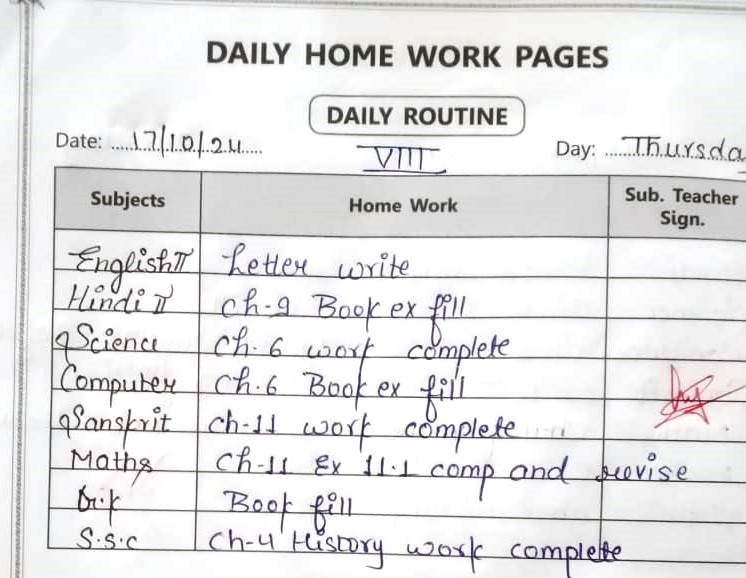 DAILY HOME WORK PAGES
DAILY ROUTINE
Date: .....17/10/24..... VIII Day: ......Thursda
Subjects Home Work Sub. Teacher Sign.
English II Letter write
Hindi II Ch-9 Book ex fill
Science Ch-6 work complete
Computer Ch-6 Book ex fill
Sanskrit Ch-11 work complete
Maths Ch-11 Ex 11.1 comp and revise
Book fill
S.S.C Ch-4 History work complete